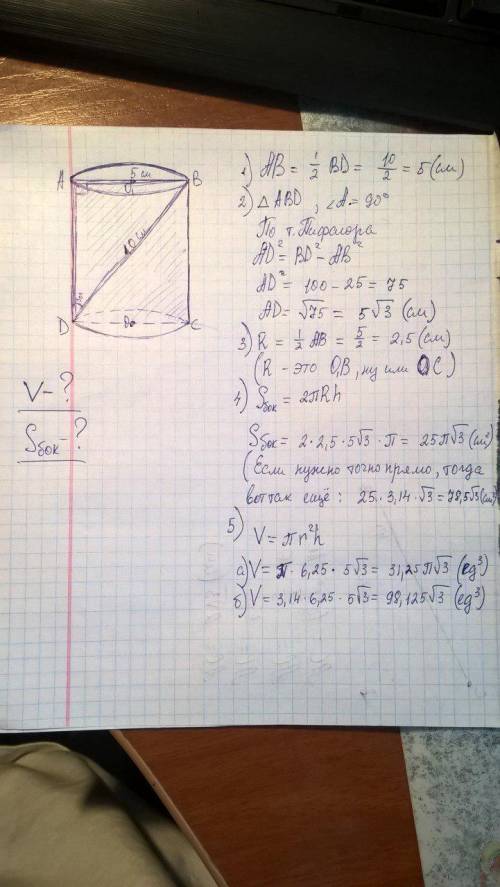 A
5 см
B
O₁
10 см
D
O
C
V - ?
Sбок - ?
1) AB = 1/2 BD = 10/2 = 5 (см)
2) △ABD, ∠A = 90°
По т. Пифагора
AD² = BD² - AB²
AD² = 100 - 25 = 75
AD = √75 = 5√3 (см)
3) R = 1/2 AB = 5/2 = 2,5 (см)
(R - это O₁B, ну или OC)
4) Sбок = 2πRh
Sбок = 2 · 2,5 · 5√3 · π = 25π√3 (см²)
(Если нужно точно прямо, тогда
вот так ещё: 25 · 3,14 · √3 = 78,5√3 (см²)
5) V = πr²h
а) V = π · 6,25 · 5√3 = 31,25π√3 (ед³)
б) V = 3,14 · 6,25 · 5√3 = 98,125√3 (ед³)